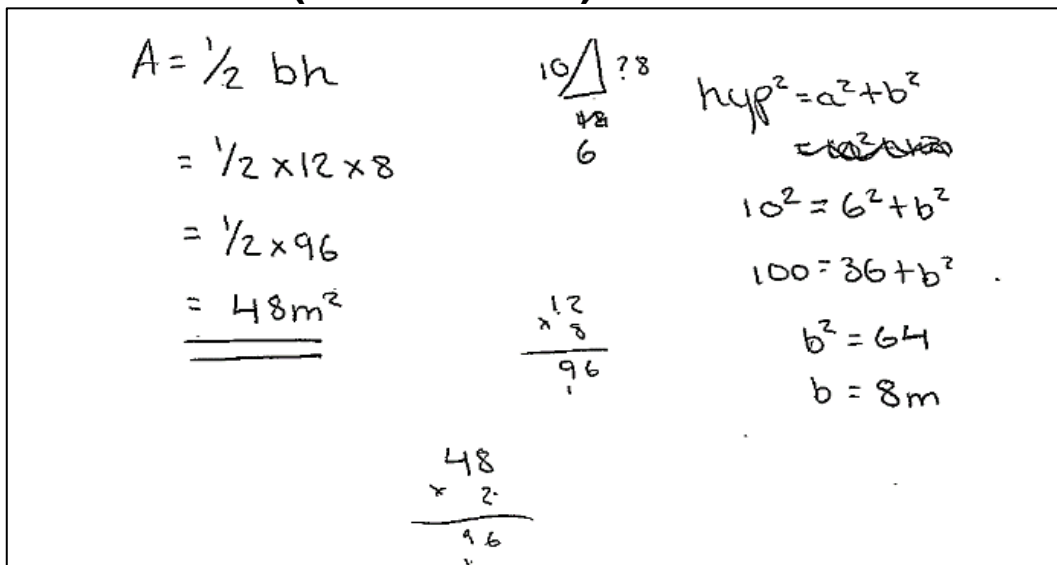 A = 1/2 bh
= 1/2 × 12 × 8
= 1/2 × 96
= 48m²
10 ? 8
6
hyp² = a² + b²
10² = 6² + b²
100 = 36 + b²
b² = 64
b = 8m
12
× 8
96
1
48
× 2
96
1